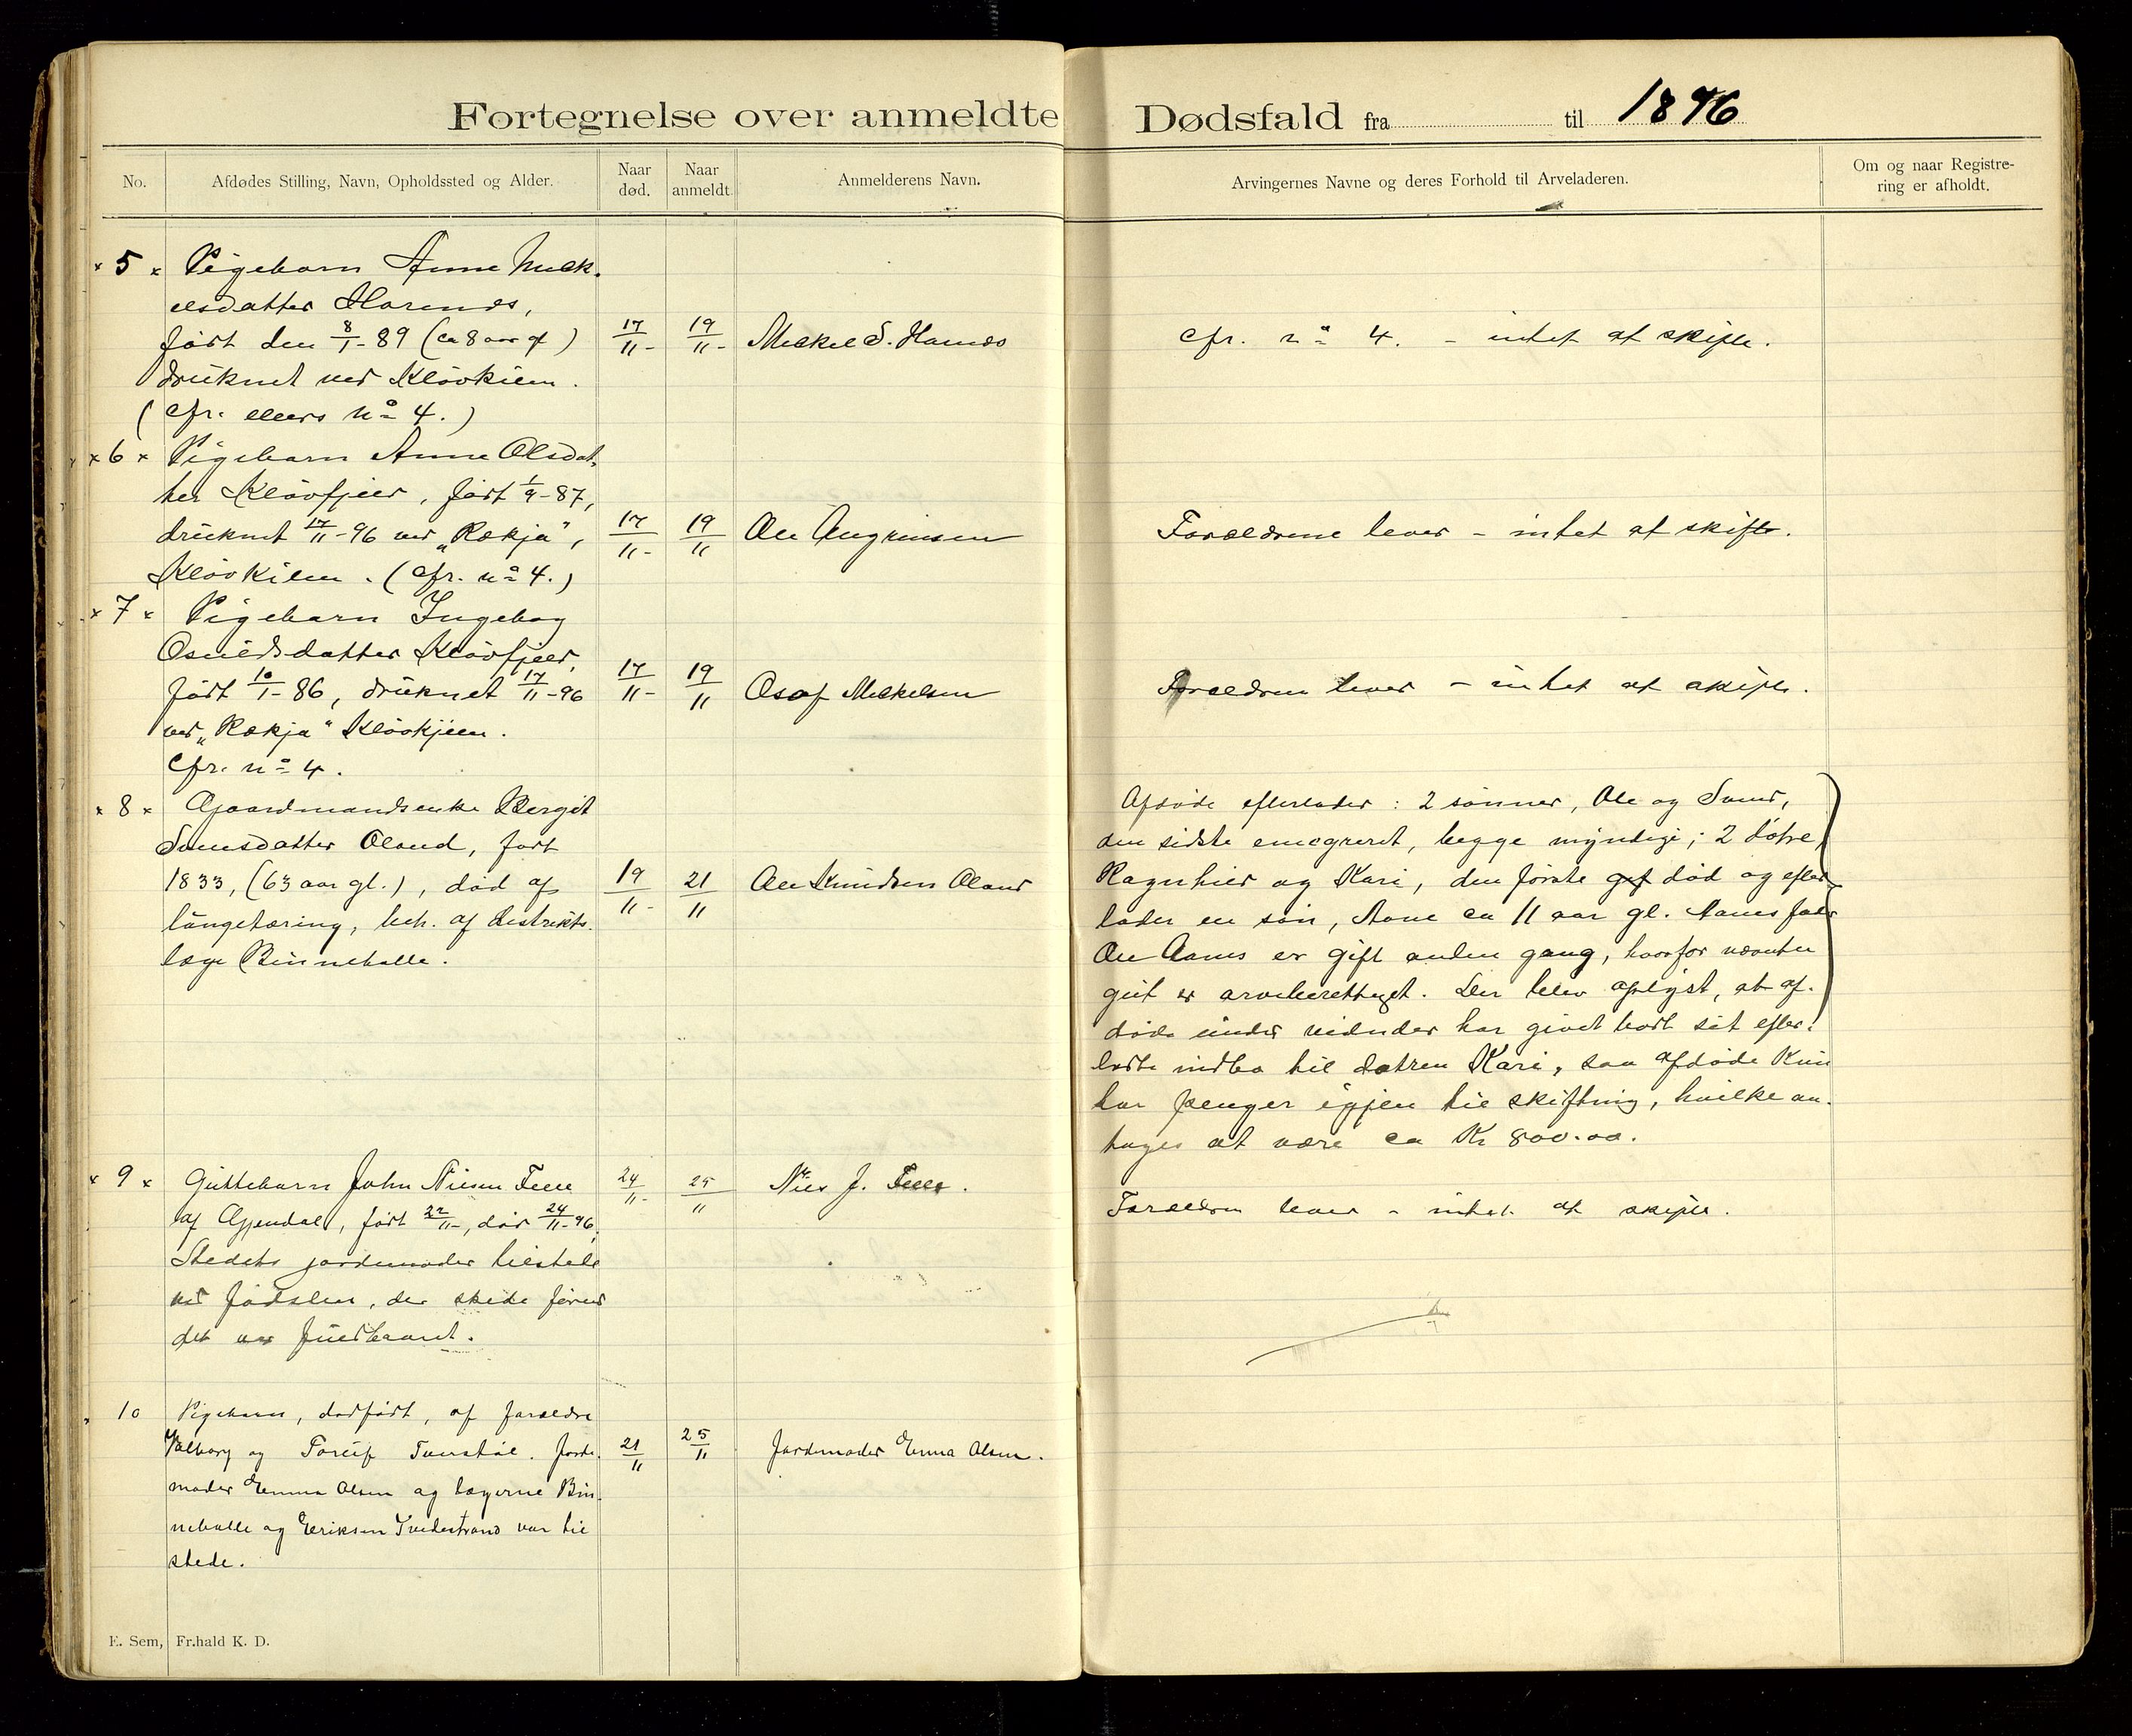 Fortegnelse over anmeldte Dødsfald fra til 1896
No.
Afdødes Stilling, Navn, Opholdssted og Alder.
Naar død.
Naar anmeldt.
Anmelderens Navn.
Arvingernes Navne og deres Forhold til Arveladeren.
Om og naar Registre-
ring er afholdt.
× 5 × Pigebarn Anne Mick-
elsdatter
født den 8/1-89 (ca 8 aar gl) 17/11- 19/11- Mikkel S. cfr. nº 4. - intet at skifte.
druknet ved Kløvkilen.
(cfr. ellers nº 4.)
× 6 × Pigebarn Anne Olsdat-
ter Kløvfjeld, født 1/9-87,
druknet 17/11-96 ved „Rækja", 17/11- 19/11 Ole Forældrene lever - intet at skifte.
Kløvkilen. (cfr. nº 4.)
× 7 × Pigebarn Ingebog
Osuldsdatter Kløvfjeld,
født 10/1-86, druknet 17/11-96 17/11- 19/11 Forældrene lever - intet at skifte.
ved „Rækja" Kløvkjilen.
cfr. nº 4.
× 8 × Gaardmandsenke Bergit
datter Oland, født
1833, (63 aar gl.), død af 19/11- 21/11 Ole Knudsen Oland
lungetæring, beh. af distrikts-
læge Binneballe.
Afdøde efterlader: 2 sønner, Ole og
den sidste emegreret, begge myndige; 2 døtre,
Ragnhild og Kari, den første gift død og efter-
lader en søn, ca 11 aar gl. fader
Ole er gift anden gang, hvorfor nævnte
gut er arveberettiget. Der blev oplyst, at af-
døde under vidnder har givet bort sit efter-
ladte indbo til datren Kari, saa afdøde kun
har penger igjen til skiftning, hvilke an-
tages at være ca Kr 800.00.
× 9 × Guttebarn John Nilsen Felle 24/11- 25/11 Nils J. Felle.
af Gjendal, født 22/11-, død 24/11-96. Forældren lever - intet at skifte.
Stedets jordemoder tilstede
ved fødslen, der skede førend
det var fuldbaaret.
10 Pigebarn, dødfødt, af forældre
Valborg og Torleif Tveitstøl. Jorde- 21/11 25/11 Jordemoder Emma Olsen.
moder Emma Olsen og lægerne Bin-
neballe og Eriksen Tvedestrand var til
stede.
E. Sem, Fr.hald K. D.